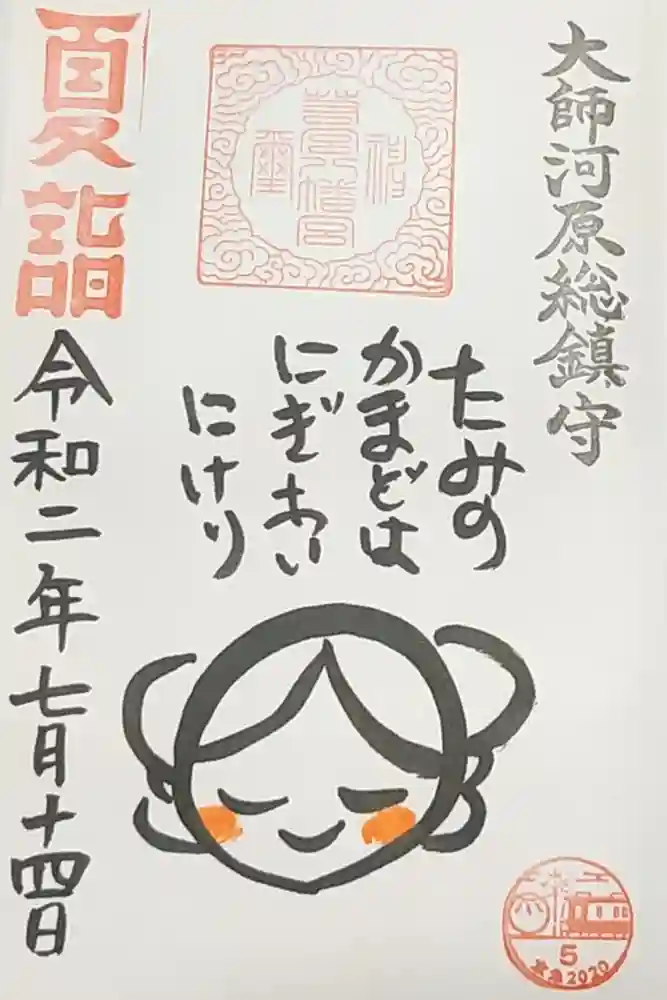 大師河原総鎮守
たみの
かまどは
にぎわい
にけり
夏詣
令和二年七月十四日
5
2020